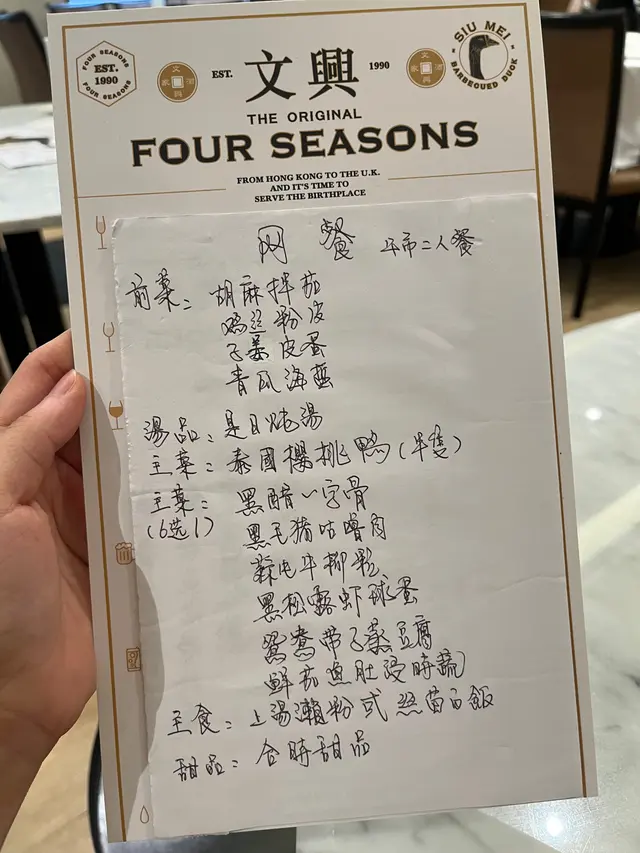 FOUR SEASONS
EST.
1990
FOUR SEASONS
文興酒家
EST. 文興 1990
文興酒家
SIU MEI
BARBECUED DUCK
THE ORIGINAL
FOUR SEASONS
FROM HONG KONG TO THE U.K.
AND IT'S TIME TO
SERVE THE BIRTHPLACE
网餐 午市二人餐
前菜: 胡麻拌茄
鸡丝粉皮
子姜皮蛋
青瓜海蜇
湯品: 是日炖湯
主菜: 泰國櫻桃鴨(半隻)
主菜: 黑醋一字骨
(6选1) 黑毛猪咕嚕肉
蒜香牛柳粒
黑松露虾球蛋
鴛鴦带子蒸豆腐
鮮茄魚肚浸時蔬
主食: 上湯瀨粉或丝苗白飯
甜品: 合時甜品